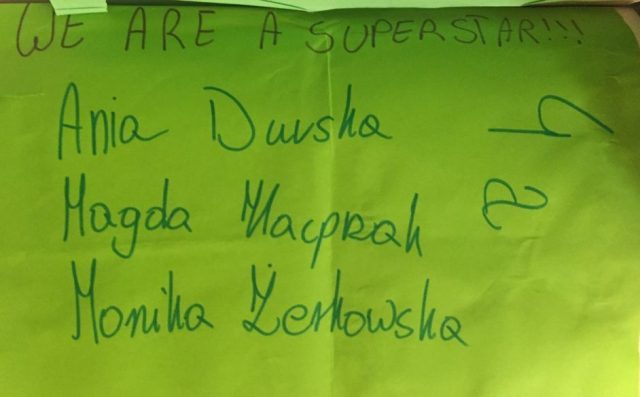 WE ARE A SUPERSTAR!!!
Ania Durska
Magda Kacprak
Monika Żerkowska
1a